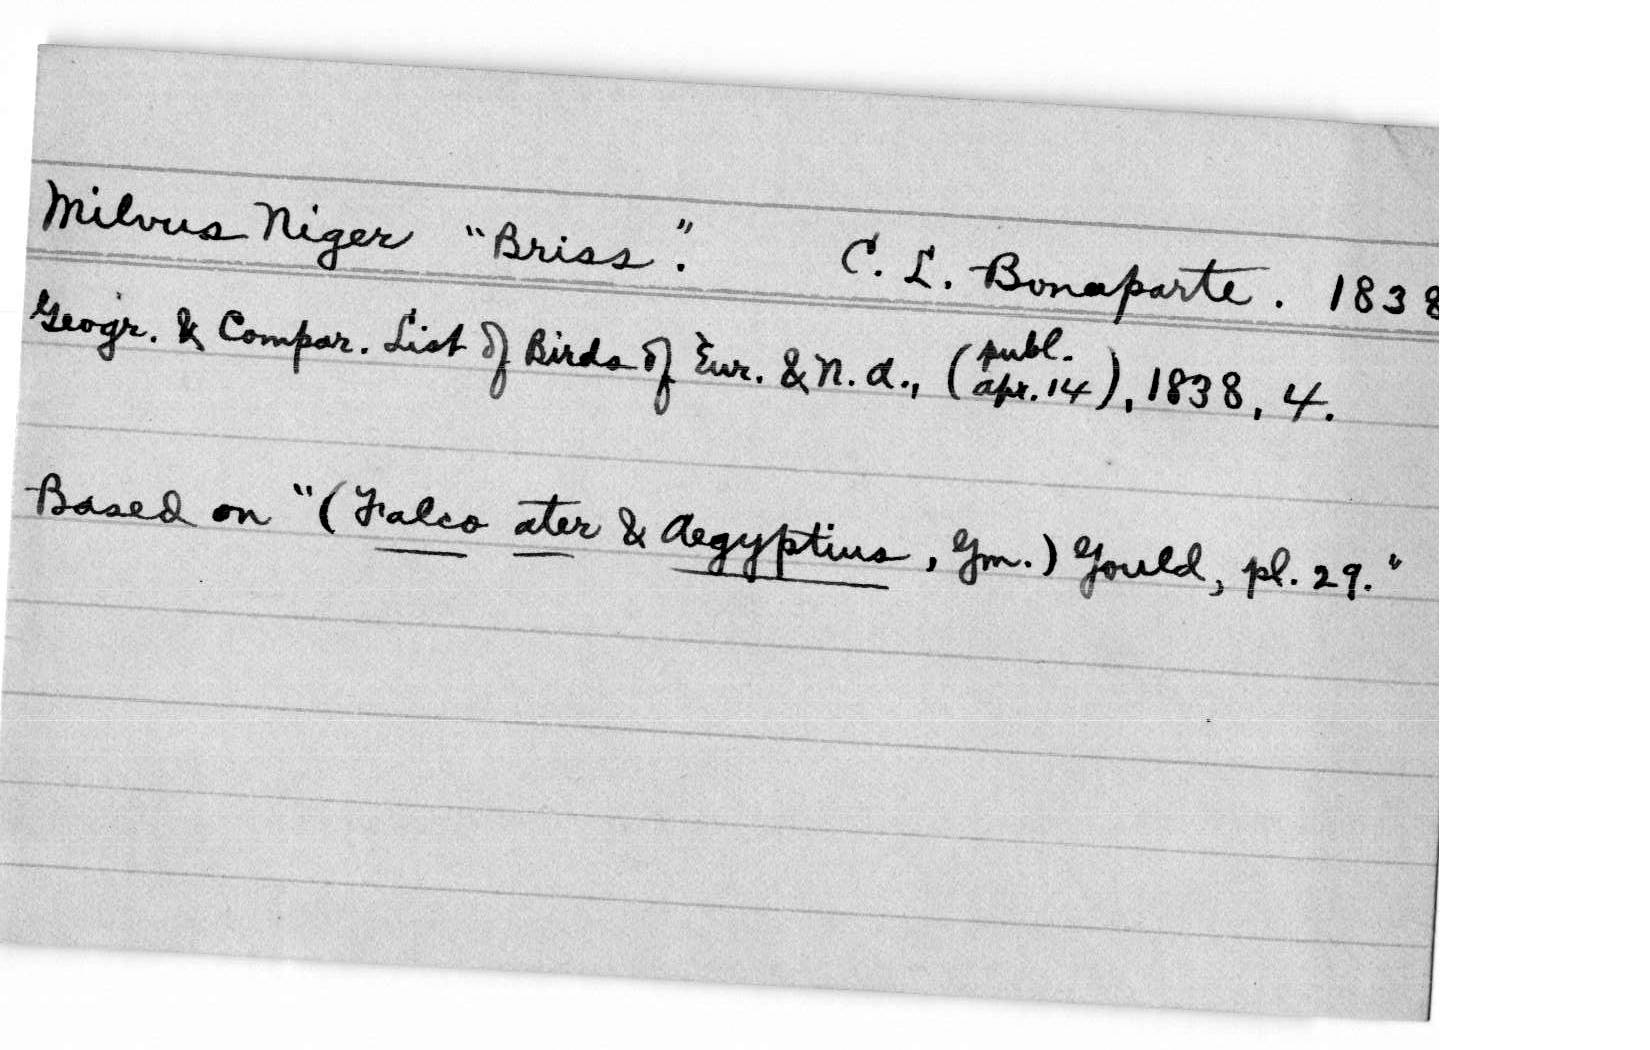 Milvus Niger "Briss". C. L. Bonaparte. 1838
Geogr. & Compar. List of Birds of Eur. & N. A., (publ. Apr. 14), 1838, 4.
Based on "(Falco ater & Aegyptius, Gm.) Gould, pl. 29."